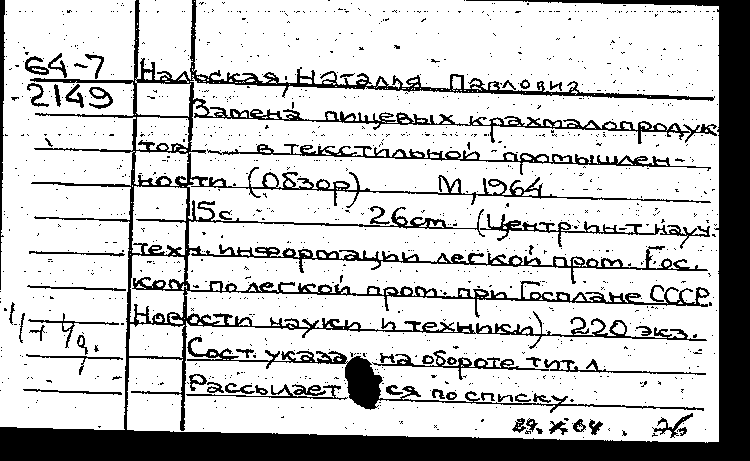 64-7
2149
Нальская, Наталья Павловна
Замена пищевых крахмалопродук-
тов в текстильной промышлен-
ности. (Обзор). М., 1964.
15с. 26см. (Центр. ин-т науч.-
техн. информации легкой пром. Гос.
ком. по легкой пром. при Госплане СССР.
Новости науки и техники). 220 экз.
Сост. указан на обороте тит. л.
Рассылается по списку.